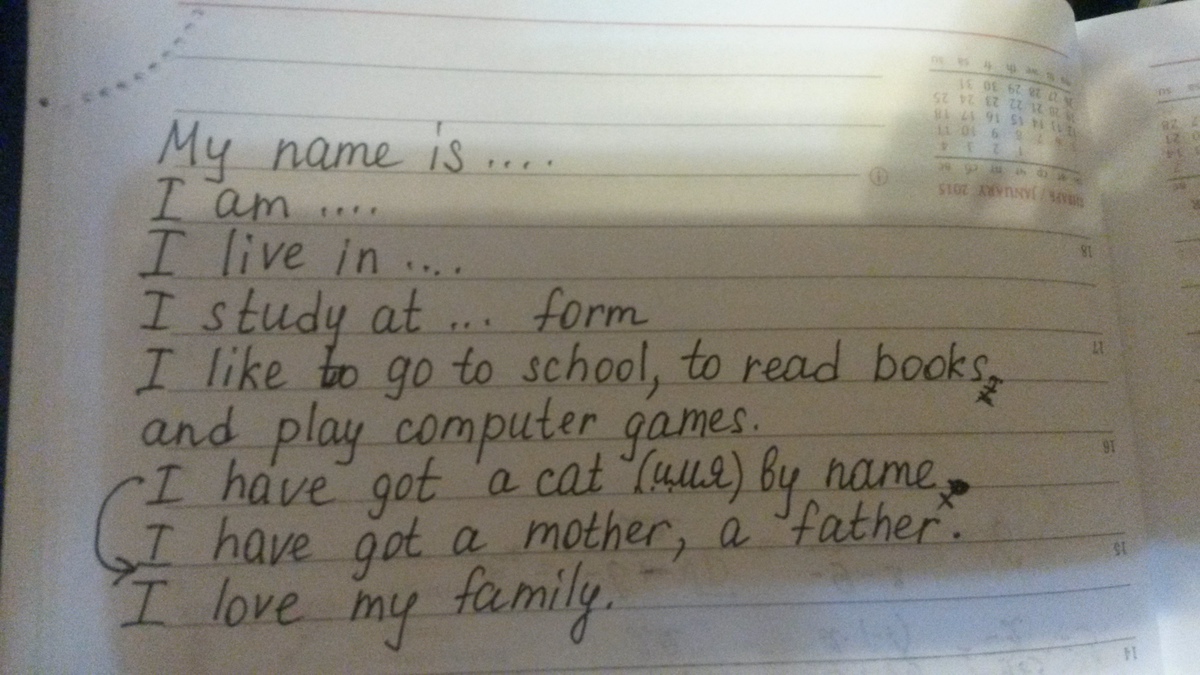 My name is ....
I am ....
I live in ....
I study at ... form
I like to go to school, to read books,
and play computer games.
I have got a cat (имя) by name.
I have got a mother, a father.
I love my family.
ЯНВАРЬ / JANUARY 2015
18
17
16
15
14